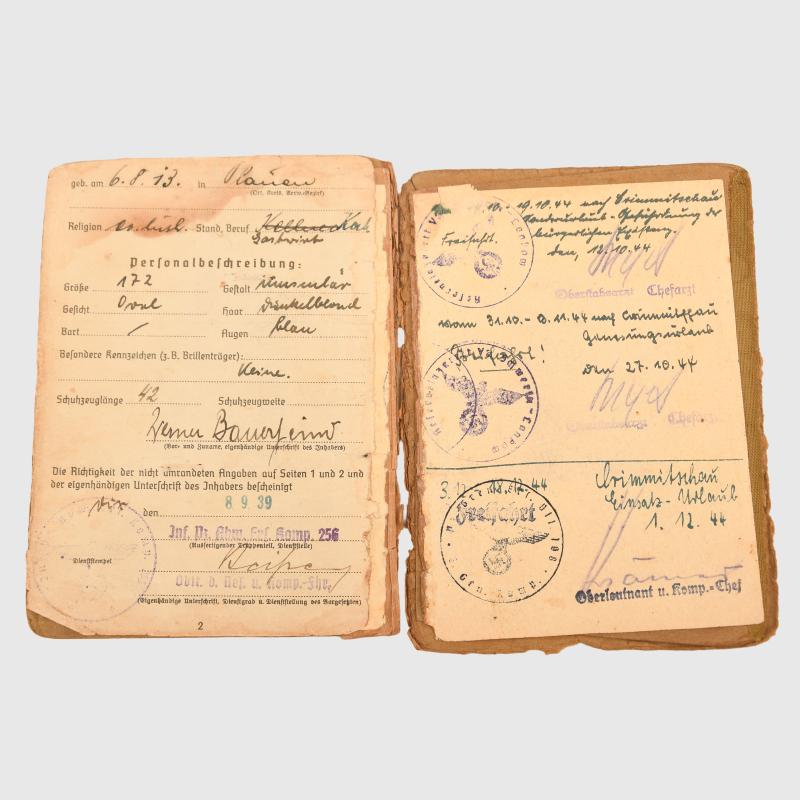 geb. am 6.8.13. in Plauen
(Ort, Kreis, Verw.-Bezirk)
Religion ev. luth. Stand, Beruf
Gastwirt
Personalbeschreibung:
Größe 172 Gestalt
Gesicht Oval Haar Dunkelblond
Bart / Augen blau
Besondere Kennzeichen (z. B. Brillenträger):
Keine.
Schuhzeuglänge 42 Schuhzeugweite
Werner Bauerfeind
(Vor- und Zuname, eigenhändige Unterschrift des Inhabers)
Die Richtigkeit der nicht umrandeten Angaben auf Seiten 1 und 2 und
der eigenhändigen Unterschrift des Inhabers bescheinigt
den 8 9 39
Inf. Pz. Abw. Ers. Komp. 256
(Ausfertigender Truppenteil, Dienststelle)
Dienststempel
Obltr. d. Res. u. Komp.-Fhr.
(Eigenhändige Unterschrift, Dienstgrad u. Dienststellung des Vorgesetzten)
2
10. - 19.10.44 nach Crimmitschau
Sonderurlaub -
bürgerlichen Existenz
Freifahrt. den, 12.10.44
Oberstabsarzt Chefarzt
vom 31.10. - 11.44 nach Crimmitschau
Genesungsurlaub
den 27.10.44
Oberstabsarzt Chefarzt
12.44 Crimmitschau
Einsatz-Urlaub
Freifahrt 1.12.44
Oberleutnant u. Komp.-Chef